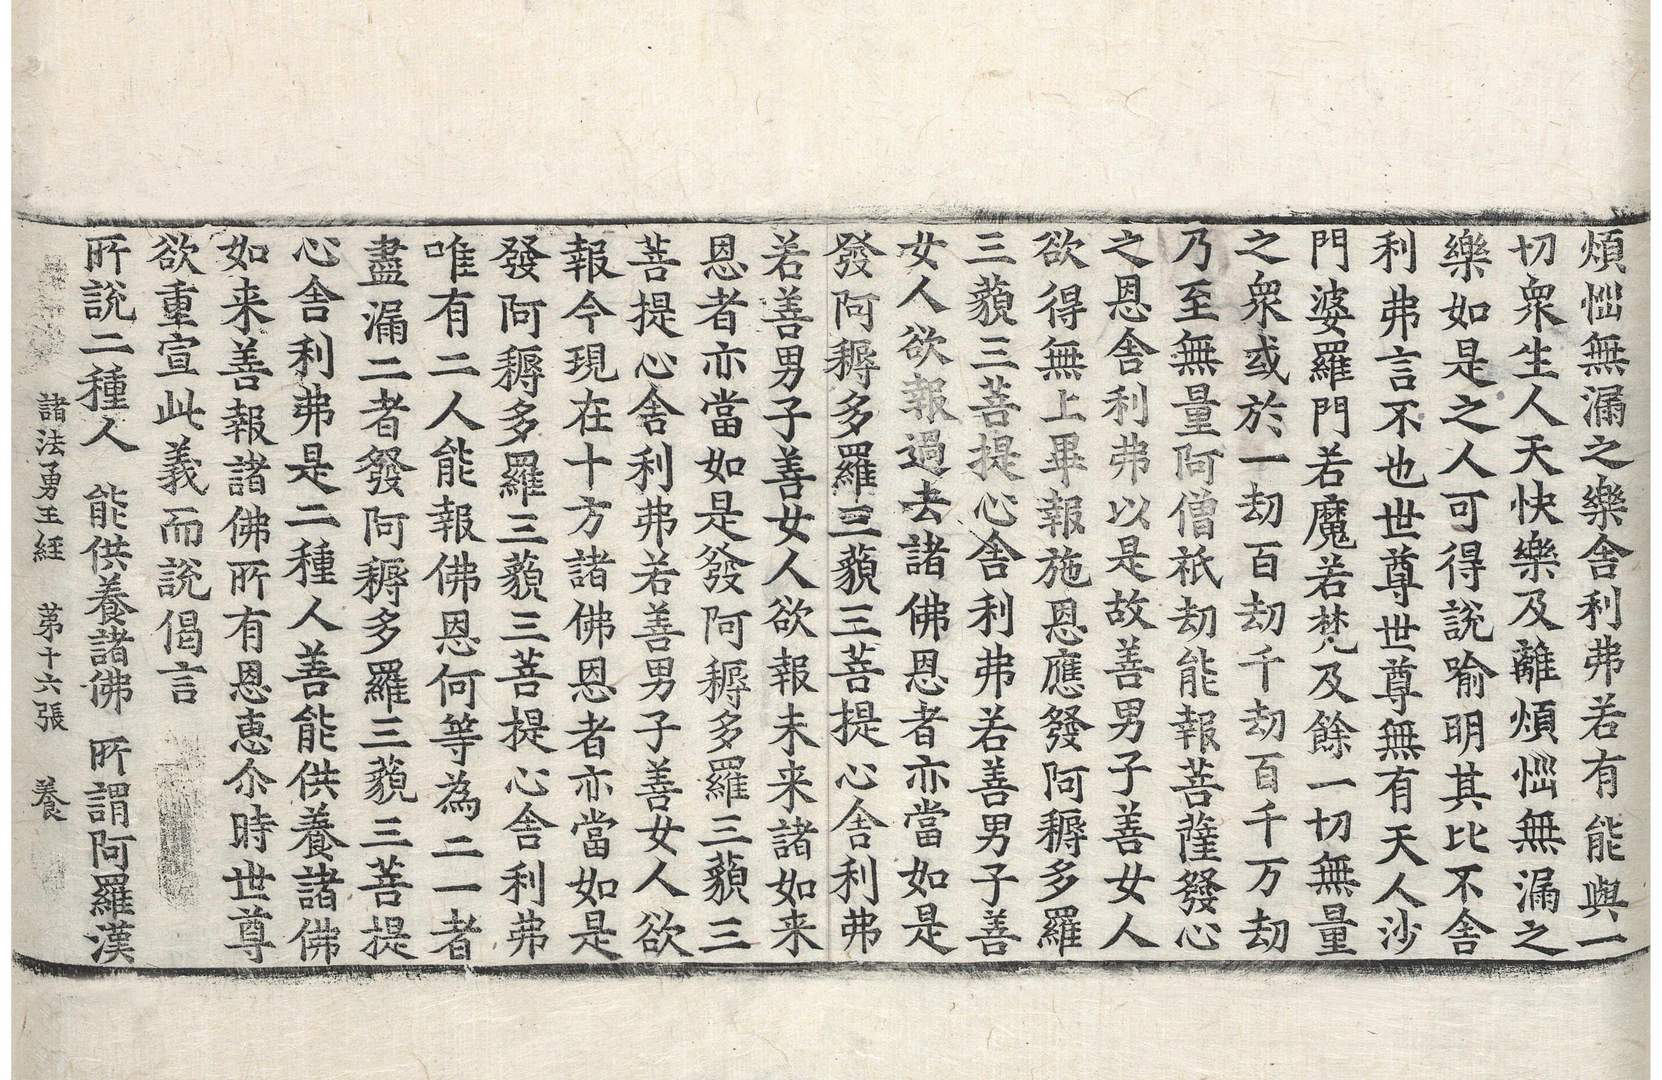 煩惱無漏之樂舍利弗若有能與一
切衆生人天快樂及離煩惱無漏之
樂如是之人可得說喻明其比不舍
利弗言不也世尊世尊無有天人沙
門婆羅門若魔若梵及餘一切無量
之衆或於一劫百劫千劫百千万劫
乃至無量阿僧祇劫能報菩薩發心
之恩舍利弗以是故善男子善女人
欲得無上畢報施恩應發阿耨多羅
三藐三菩提心舍利弗若善男子善
女人欲報過去諸佛恩者亦當如是
發阿耨多羅三藐三菩提心舍利弗
若善男子善女人欲報未来諸如来
恩者亦當如是發阿耨多羅三藐三
菩提心舍利弗若善男子善女人欲
報今現在十方諸佛恩者亦當如是
發阿耨多羅三藐三菩提心舍利弗
唯有二人能報佛恩何等為二一者
盡漏二者發阿耨多羅三藐三菩提
心舍利弗是二種人善能供養諸佛
如来善報諸佛所有恩惠尒時世尊
欲重宣此義而說偈言
所說二種人　能供養諸佛　所謂阿羅漢
諸法勇王経　第十六張　養